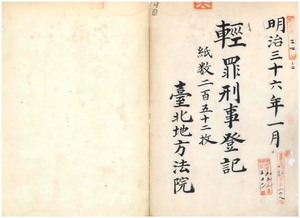 明治三十六年一月
輕罪刑事登記
紙数二百五十二枚
臺北地方法院